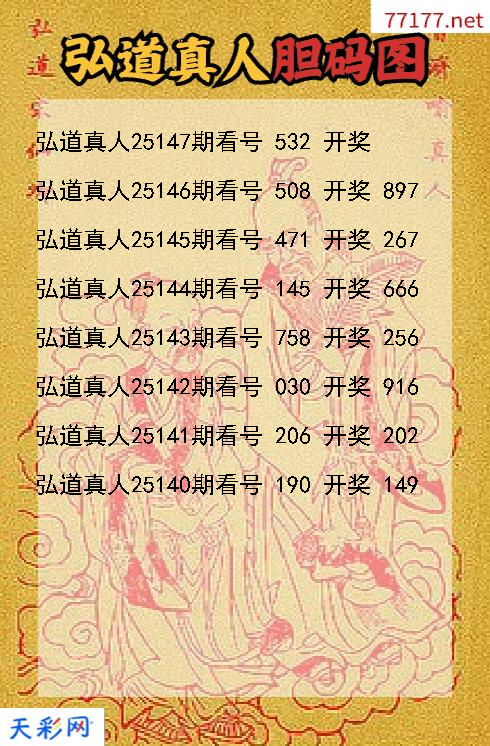 77177.net
弘道真人胆码图
弘道真人25147期看号 532 开奖
弘道真人25146期看号 508 开奖 897
弘道真人25145期看号 471 开奖 267
弘道真人25144期看号 145 开奖 666
弘道真人25143期看号 758 开奖 256
弘道真人25142期看号 030 开奖 916
弘道真人25141期看号 206 开奖 202
弘道真人25140期看号 190 开奖 149
天彩网